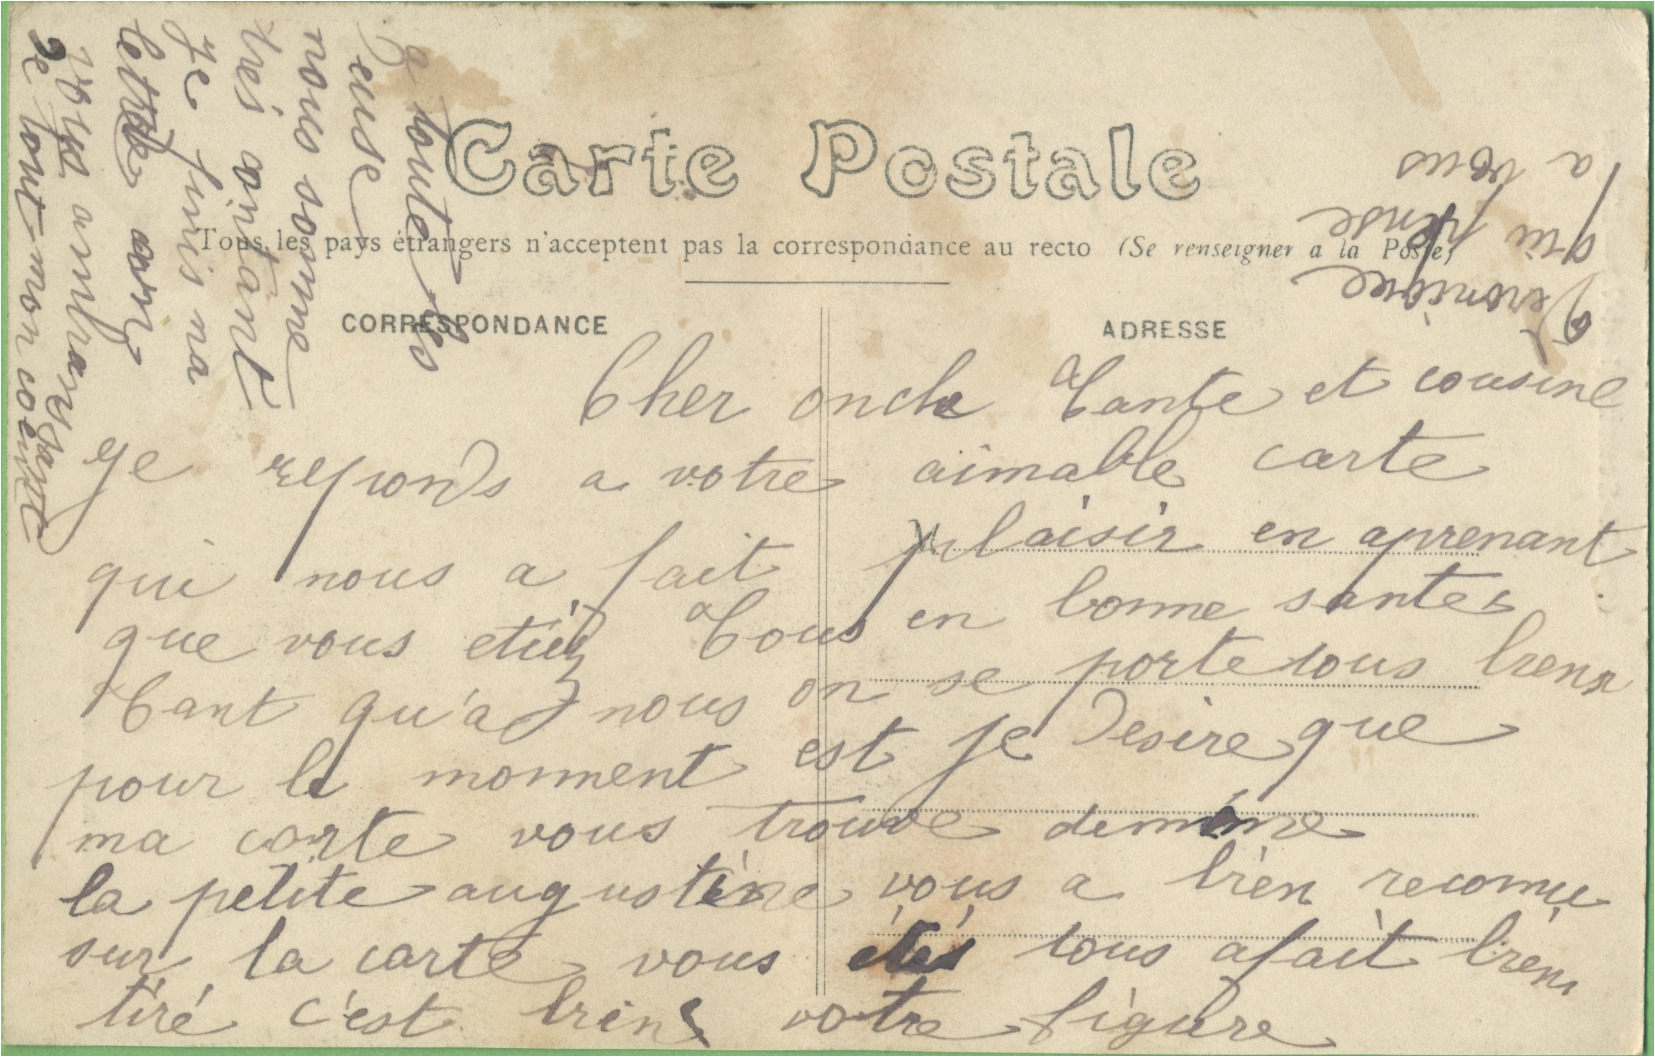 Carte Postale
Tous les pays étrangers n'acceptent pas la correspondance au recto (Se renseigner a la Poste)
CORRESPONDANCE
ADRESSE
Cher oncle Tante et cousine
ge reponds a votre aimable carte
qui nous a fait plaisir en aprenant
que vous etiez Tous en bonne santer
Tant qu'a nous on se porte tous bien
pour le moment est je desire que
ma carte vous trouve demême
la petite augustine vous a bien reconnu
sur la carte vous etes tous afait bien
tiré c'est bien votre figure
a toute les
nous somme
tres contant
Je finis ma
letre en
vous ambrasant
de tout mon coeur
Veronique
qui pense
a vous